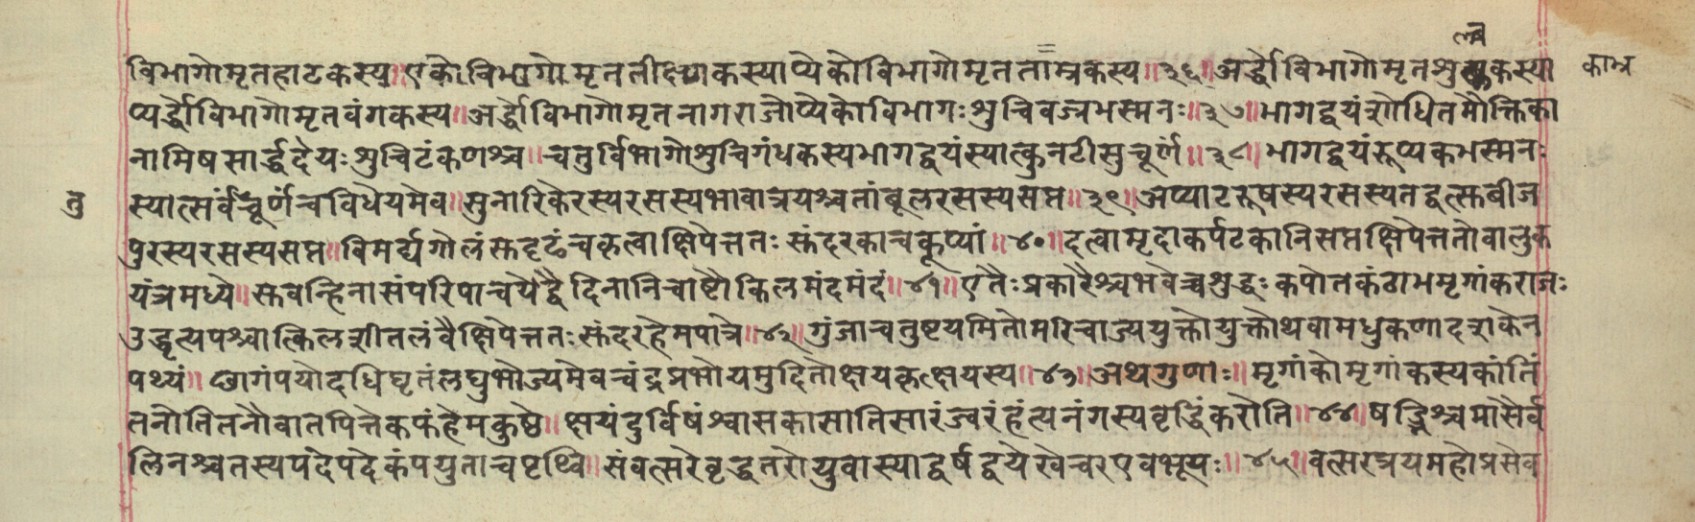 ल्व
विभागोमृतहाटकस्य॥एकोविभागोमृततीक्ष्णकस्याप्येकोविभागोमृतताम्रकस्य॥३६॥अर्द्धोविभागोमृतशुल्वकस्या काभ्र
प्यर्द्धोविभागोमृतवंगकस्य॥अर्द्धोविभागोमृतनागराजोप्येकोविभागःशुचिवज्रभस्मनः॥३७॥भागद्वयंशोधितमौक्तिका
नामिषसार्द्धर्द्देयःशुचिटंकणश्च॥चतुर्विभागोशुचिगंधकस्यभागद्वयंस्यात्कुनटीसुचूर्णं॥३८॥भागद्वयंरुप्यकभस्मनः
तु स्यात्सर्वंचूर्णंचविधेयमेव॥सुनारिकेरस्यरसस्यभावात्रयश्चतांबूलरसस्यसप्त॥३९॥अप्याटरुषस्यरसस्यतद्वत्सबीज
पुरस्यरसस्यसप्त॥विमर्द्यगोलंसदृढंचकृत्वाक्षिपेत्ततःसुंदरकाचकूप्यां॥४०॥दत्वामृदाकर्पटकानिसप्तक्षिपेत्ततोवालुक
यंत्रमध्ये॥सवन्हिनासंपरिपाचयेद्वैदिनानिचाष्टौकिलमंदमंदं॥४१॥एतैःप्रकारैश्चभवेच्चशुद्धःकपोतकंठाभमृगांकराजः
उद्धृत्यपश्चात्किलशीतलंवैक्षिपेत्ततःसुंदरहेमपात्रे॥४२॥गुंजाचतुष्टयमितोमरिचाज्ययुक्तोयुक्तोथवामधुकणादशकेन
पथ्यं॥छागंपयोदधिघृतंलघुभोज्यमेवचंद्रप्रभोयमुदितोक्षयकृत्क्षयस्य॥४३॥अथगुणाः॥मृगांकोमृगांकस्यकांतिं
तनोतितनौवातपित्तेकफंहैमकुष्ठे॥क्षयंदुर्विषंश्वासकासातिसारंज्वरंहंत्यनंगस्यवृद्धिंकरोति॥४४॥षड्भिश्चमासैर्व
लिनश्चतस्यपदेपदेकंपयुताचपृथ्वि॥संवत्सरेवृद्धतरोयुवास्याद्वर्षद्वयेखेचरएवभूयः॥४५॥वत्सरत्रयमहोप्रसेव